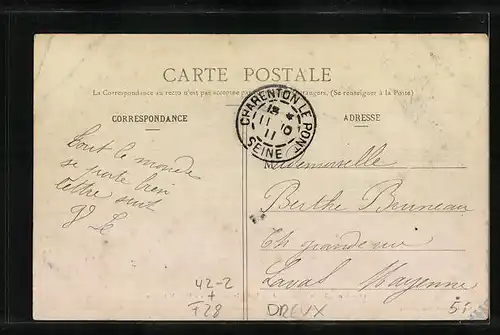 CARTE POSTALE
La Correspondance au recto n'est pas acceptée par tous les pays étrangers. (Se renseigner à la Poste)
CORRESPONDANCE
ADRESSE
CHARENTON LE PONT
11 10
11
SEINE
Tout le monde
se porte bien
lettre suit
Mademoiselle
Berthe Bruneau
grande rue
Laval Mayenne
42-2
+
F28
DREUX
5